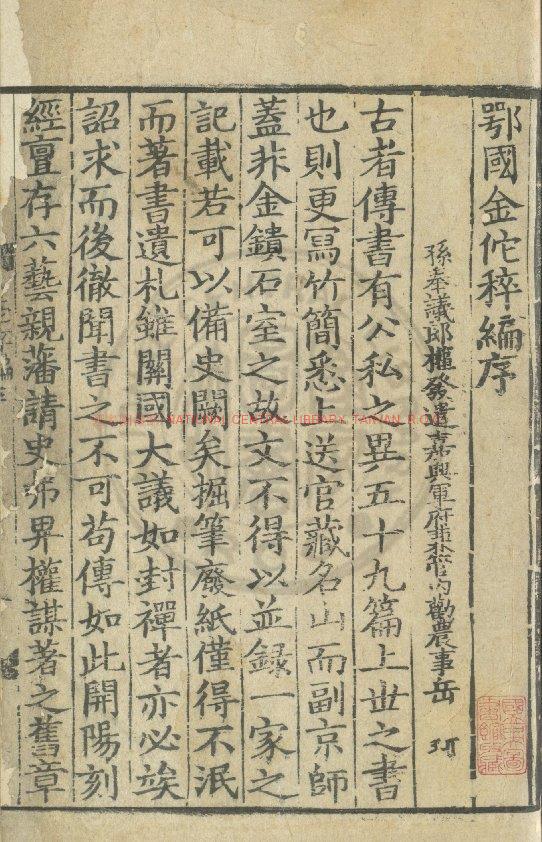 鄂國金佗稡編序
孫奉議郎權發遣嘉興軍府兼管內勸農事岳 珂
古者傳書有公私之異五十九篇上丗之書
也則更寫竹簡悉上送官藏名山而副京師
蓋非金鐀石室之故文不得以並錄一家之
記載若可以備史闕矣掘筆廢紙僅得不泯
而著書遺札雖關國大議如封禪者亦必竢
詔求而後徹聞書之不可苟傳如此開陽刻
經亶存六藝親藩請史弗畀權謀著之舊章
NATIONAL CENTRAL LIBRARY, TAIWAN, R.O.C.